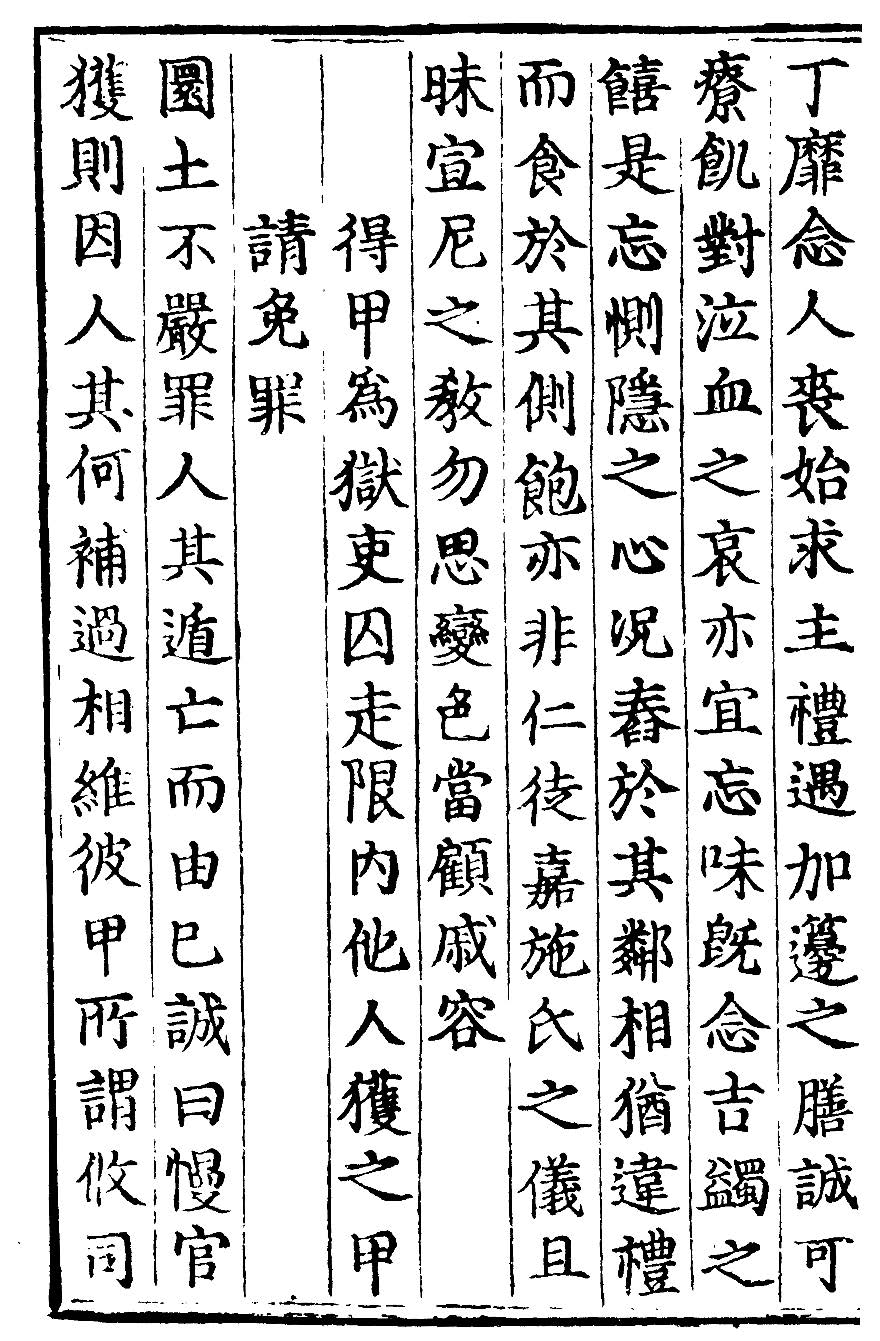 丁靡念人喪始求主禮遇加籩之膳誠可
療飢對泣血之哀亦宜忘味旣念吉蠲之
饎是忘惻隱之心况舂於其鄰相猶違禮
而食於其側飽亦非仁徒嘉施氏之儀且
昧宣尼之教勿思變色當顧戚容
得甲爲獄吏囚走限内他人獲之甲
請免罪
圜土不嚴罪人其遁亡而由巳誠曰慢官
獲則因人其何補過相維彼甲所謂攸司